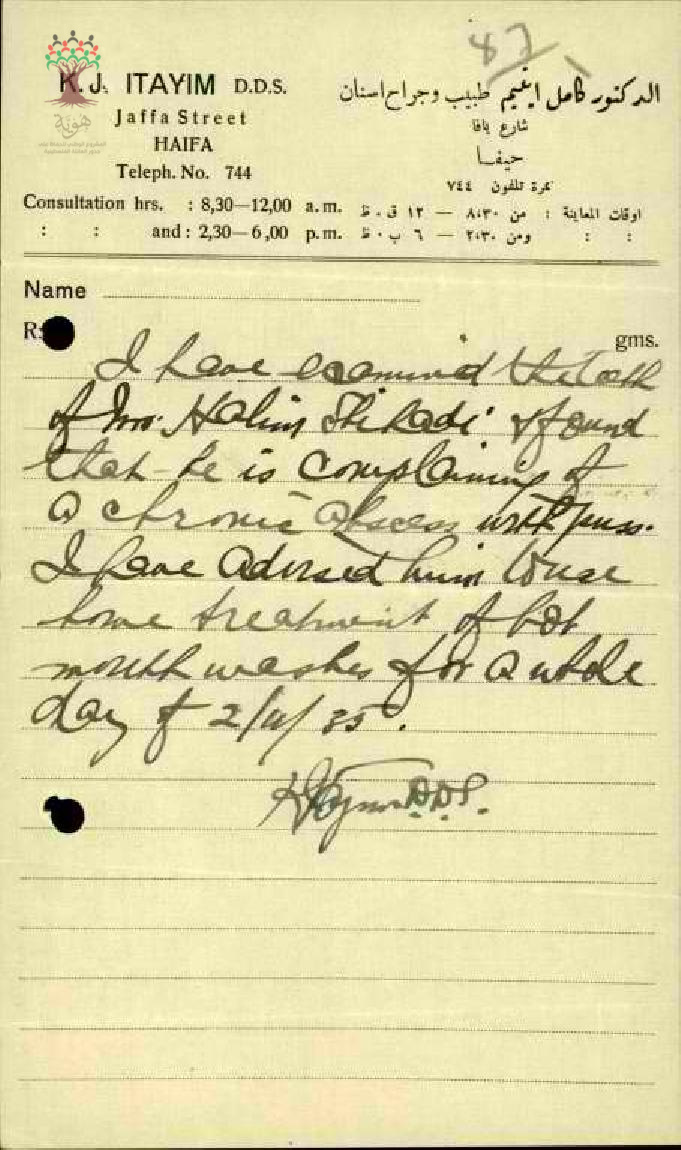 87
K. J. ITAYIM D.D.S.
Jaffa Street
HAIFA
Teleph. No. 744
Consultation hrs. : 8,30—12,00 a. m.
: : and : 2,30—6,00 p. m.
الدكتور كامل ايتيم طبيب وجراح اسنان
شارع يافا
حيفا
نمرة تلفون ٧٤٤
اوقات المعاينة : من ٨،٣٠ — ١٢ ق . ظ
: : ومن ٢،٣٠ — ٦ ب . ظ
هوية
Name
gms.
I have examined the teeth
of Mr. Halim Shihadi & found
that he is complaining of
a chronic abscess with puss.
I have advised him to use
home treatment of hot
mouth washes for a whole
day of 2/11/35.
D.D.S.